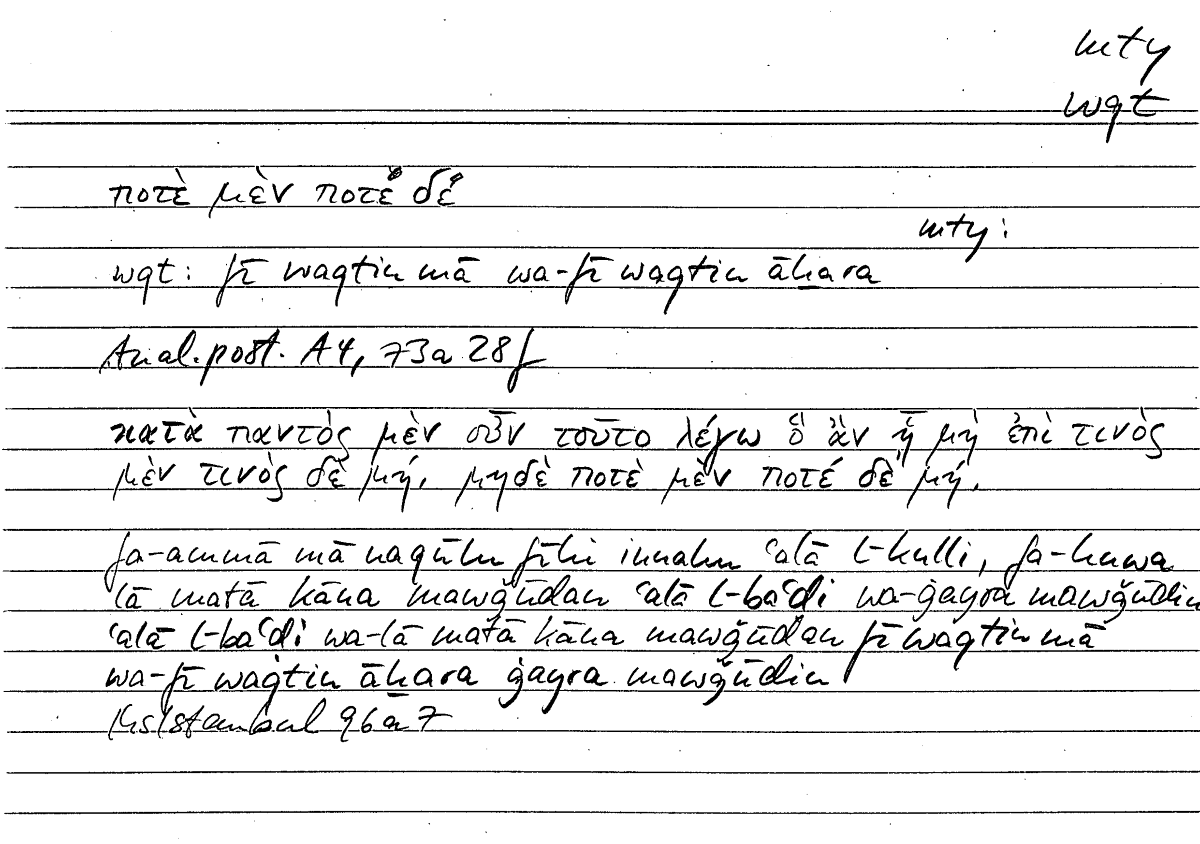 mty
wqt
ποτὲ μὲν ποτὲ δέ
mty:
wqt: fī waqtin mā wa-fī waqtin āḫara
Anal. post. A4, 73a 28 f
κατὰ παντὸς μὲν οὖν τοῦτο λέγω ὃ ἂν ᾖ μὴ ἐπὶ τινὸς
μὲν τινὸς δὲ μή, μηδὲ ποτὲ μὲν ποτέ δὲ μή.
fa-ammā mā naqūlu fīhi innahu ʿalā l-kulli, fa-huwa
lā matā kāna mawǧūdan ʿalā l-baʿḍi wa-ġayra mawǧūdin
ʿalā l-baʿḍi wa-lā matā kāna mawǧūdan fī waqtin mā
wa-fī waqtin āḫara ġayra mawǧūdin
Hs Istanbul 96a7